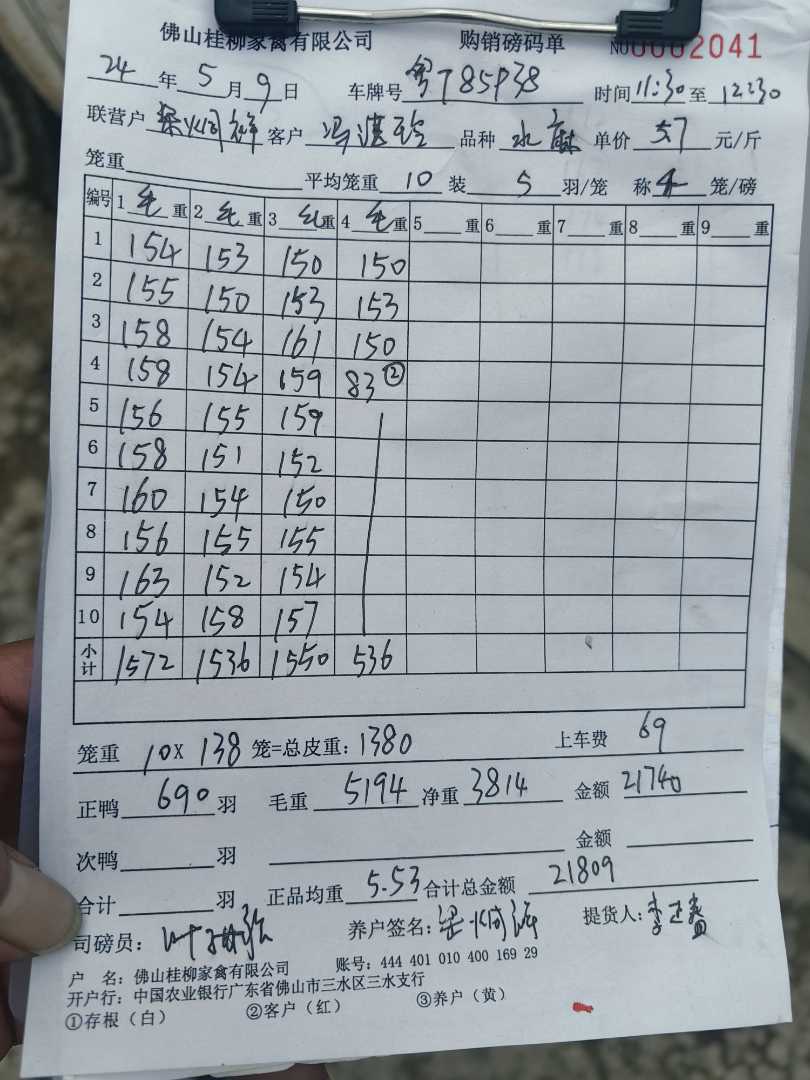 佛山桂柳家禽有限公司 购销磅码单 NO0002041
24年5月9日 车牌号 粤T85P38 时间11:30至12:30
联营户 梁炳祥 客户 冯 品种 水麻 单价 5.7 元/斤
笼重 平均笼重 10 装 5 羽/笼 称 4 笼/磅
编号 1 毛 重 2 毛 重 3 毛 重 4 毛 重 5 重 6 重 7 重 8 重 9 重
1 154 153 150 150
2 155 150 153 153
3 158 154 161 150
4 158 154 159 83②
5 156 155 159
6 158 151 152
7 160 154 150
8 156 155 155
9 163 152 154
10 154 158 157
小计 1572 1536 1550 536
笼重 10X 138 笼=总皮重:1380 上车费 69
正鸭 690 羽 毛重 5194 净重 3814 金额 21740
次鸭 羽 金额
合计 羽 正品均重 5.53 合计总金额 21809
司磅员: 养户签名: 提货人:
户 名:佛山桂柳家禽有限公司 账号:444 401 010 400 169 29
开户行:中国农业银行广东省佛山市三水区三水支行
①存根(白) ②客户(红) ③养户(黄)